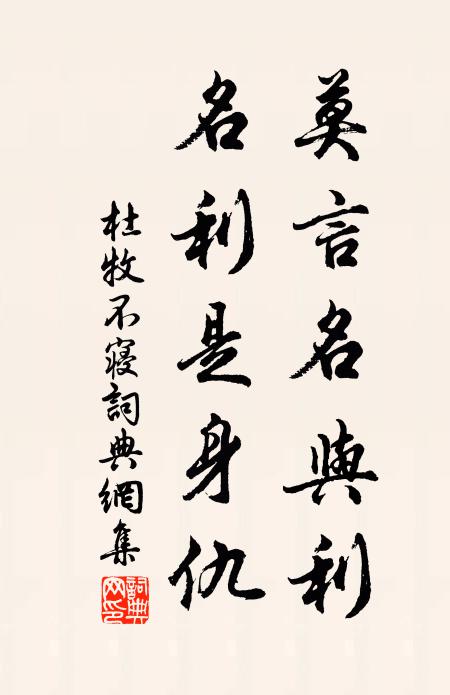 莫言名與利
名利是身仇
杜牧不寢詞典網集
詞典網印